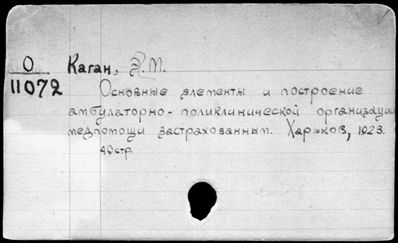 О
11072
Каган, Э.М.
Основные элементы и построение
амбулаторно-поликлинической организации
медпомощи застрахованным. Харьков, 1923.
40стр.